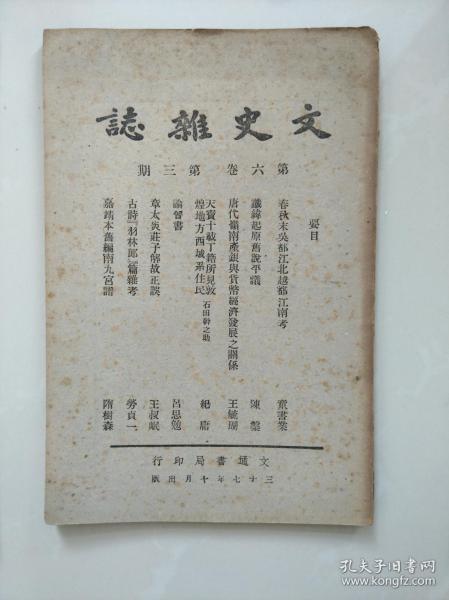 文史雜誌
第六卷 第三期
要目
春秋末吳都江北越都江南考 童書業
讖緯起原舊說平議 陳槃
唐代嶺南產銀與貨幣經濟發展之關係 王毓瑚
天寶十載丁籍所見敦
煌地方西域系住民 石田幹之助 紀庸
論晉書 呂思勉
章太炎莊子解故正誤 王叔岷
古詩「羽林郎」篇雜考 勞貞一
嘉靖本舊編南九宮譜 隋樹森
文通書局印行
三十七年十月出版
孔夫子旧书网
www.kongfz.com